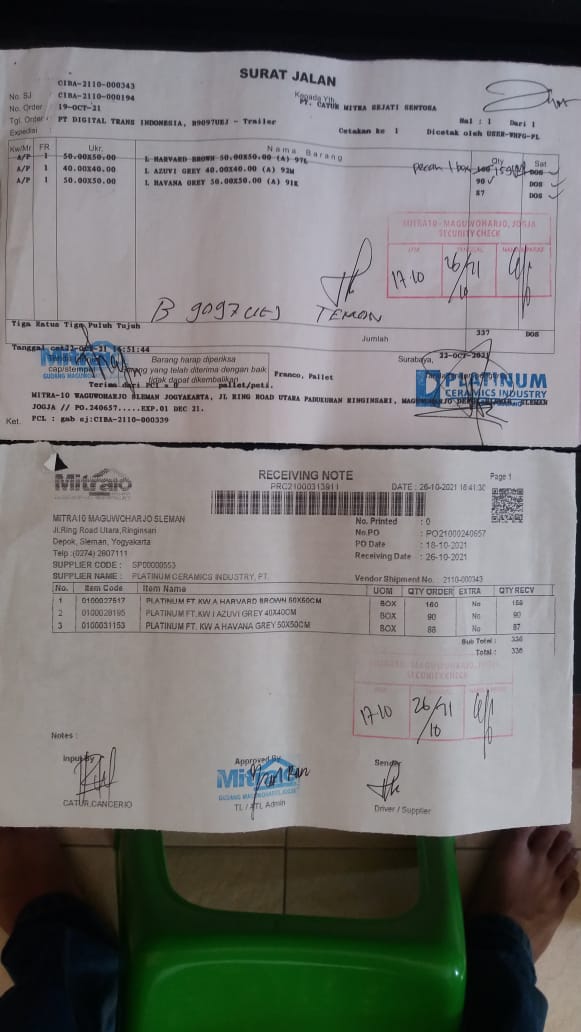 SURAT JALAN
No. SJ CIBA-2110-000343
No. Order CIBA-2110-000194
Tgl. Order 19-OCT-21
Expedisi PT DIGITAL TRANS INDONESIA, B9097UEJ - Trailer
Kepada Yth.
PT. CATUR MITRA SEJATI SENTOSA
Hal : 1 Dari 1
Cetakan ke 1 Dicetak oleh USER-WHFG-PL
Kw/Mr FR Ukr. Nama Barang Qty Sat
A/P 1 50.00X50.00 L HARVARD BROWN 50.00X50.00 (A) 97L pecah 1 box 160 159 DOS
A/P 1 40.00X40.00 L AZUVI GREY 40.00X40.00 (A) 92M 90 DOS
A/P 1 50.00X50.00 L HAVANA GREY 50.00X50.00 (A) 91K 87 DOS
MITRA10 - MAGUWOHARJO, JOGJA
SECURITY CHECK
JAM TANGGAL
17.10 26/21/10
B 9097 UEJ TEMON
Tiga Ratus Tiga Puluh Tujuh
Jumlah 337 DOS
16:51:44
Surabaya, 22-OCT-2021
cap/stempel
GUDANG
Barang harap diperiksa
yang telah diterima dengan baik
tidak dapat dikembalikan
Franco, Pallet
Terima dari PCI a 0 pallet/peti.
PLATINUM
CERAMICS INDUSTRY
MITRA-10 WAGUWOHARJO SLEMAN JOGYAKARTA, JL RING ROAD UTARA PADUKUHAN RINGINSARI, MAGUWOHARJO DEPOK SLEMAN, SLEMAN
JOGJA // PO.240657.....EXP.01 DEC 21.
Ket. PCL : gab sj:CIBA-2110-000339
Mitra10
RECEIVING NOTE
PRC21000313911
DATE : 26-10-2021 16:41:30
Page 1
MITRA10 MAGUWOHARJO SLEMAN
Jl.Ring Road Utara,Ringinsari
Depok, Sleman, Yogyakarta
Telp :(0274) 2807111
SUPPLIER CODE : SP00000553
SUPPLIER NAME : PLATINUM CERAMICS INDUSTRY, PT.
No. Printed : 0
No.PO : PO21000240657
PO Date : 18-10-2021
Receiving Date : 26-10-2021
Vendor Shipment No. 2110-000343
No. Item Code Item Name UOM QTY ORDER EXTRA QTY RECV
1 0100027517 PLATINUM FT. KW A HARVARD BROWN 50X50CM BOX 160 No 159
2 0100028195 PLATINUM FT. KW I AZUVI GREY 40X40CM BOX 90 No 90
3 0100031153 PLATINUM FT. KW A HAVANA GREY 50X50CM BOX 88 No 87
Sub Total : 336
Total : 336
SECURITY CHECK
17.10 26/21/10
Notes :
Input By
CATUR.CANCERIO
Approved By
Mitra10
GUDANG MAGUWOHARJO, JOGJA
TL / ATL Admin
Sender
Driver / Supplier